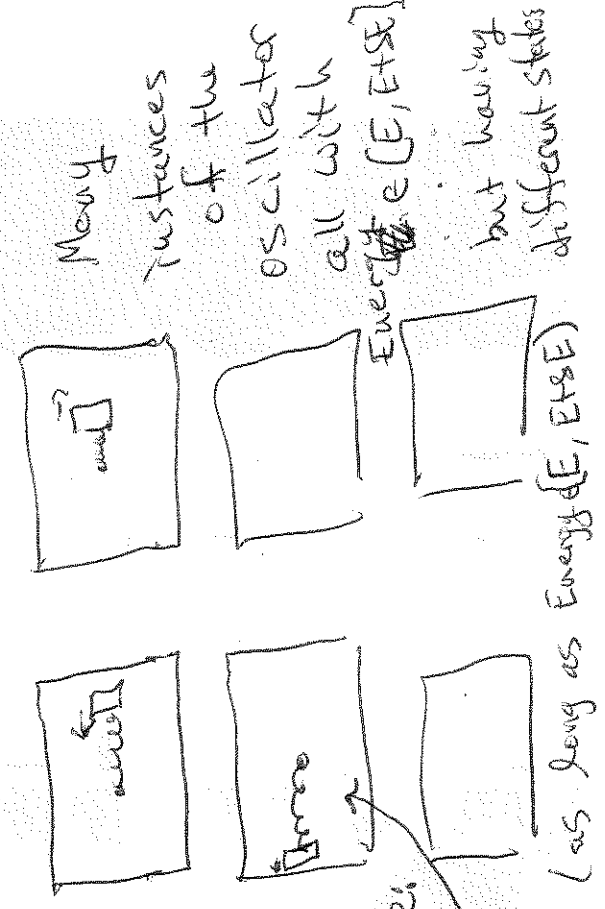 Many
instances
of the
oscillator
all with
Energy ∈ [E, E+δE]
but having
different states
(as long as Energy ∈ [E, E+δE)